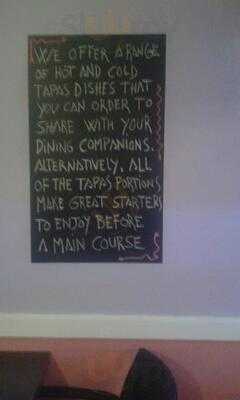 WE OFFER A RANGE
OF HOT AND COLD
TAPAS DISHES THAT
YOU CAN ORDER TO
SHARE WITH YOUR
DINING COMPANIONS.
ALTERNATIVELY, ALL
OF THE TAPAS PORTIONS
MAKE GREAT STARTERS
TO ENJOY BEFORE
A MAIN COURSE